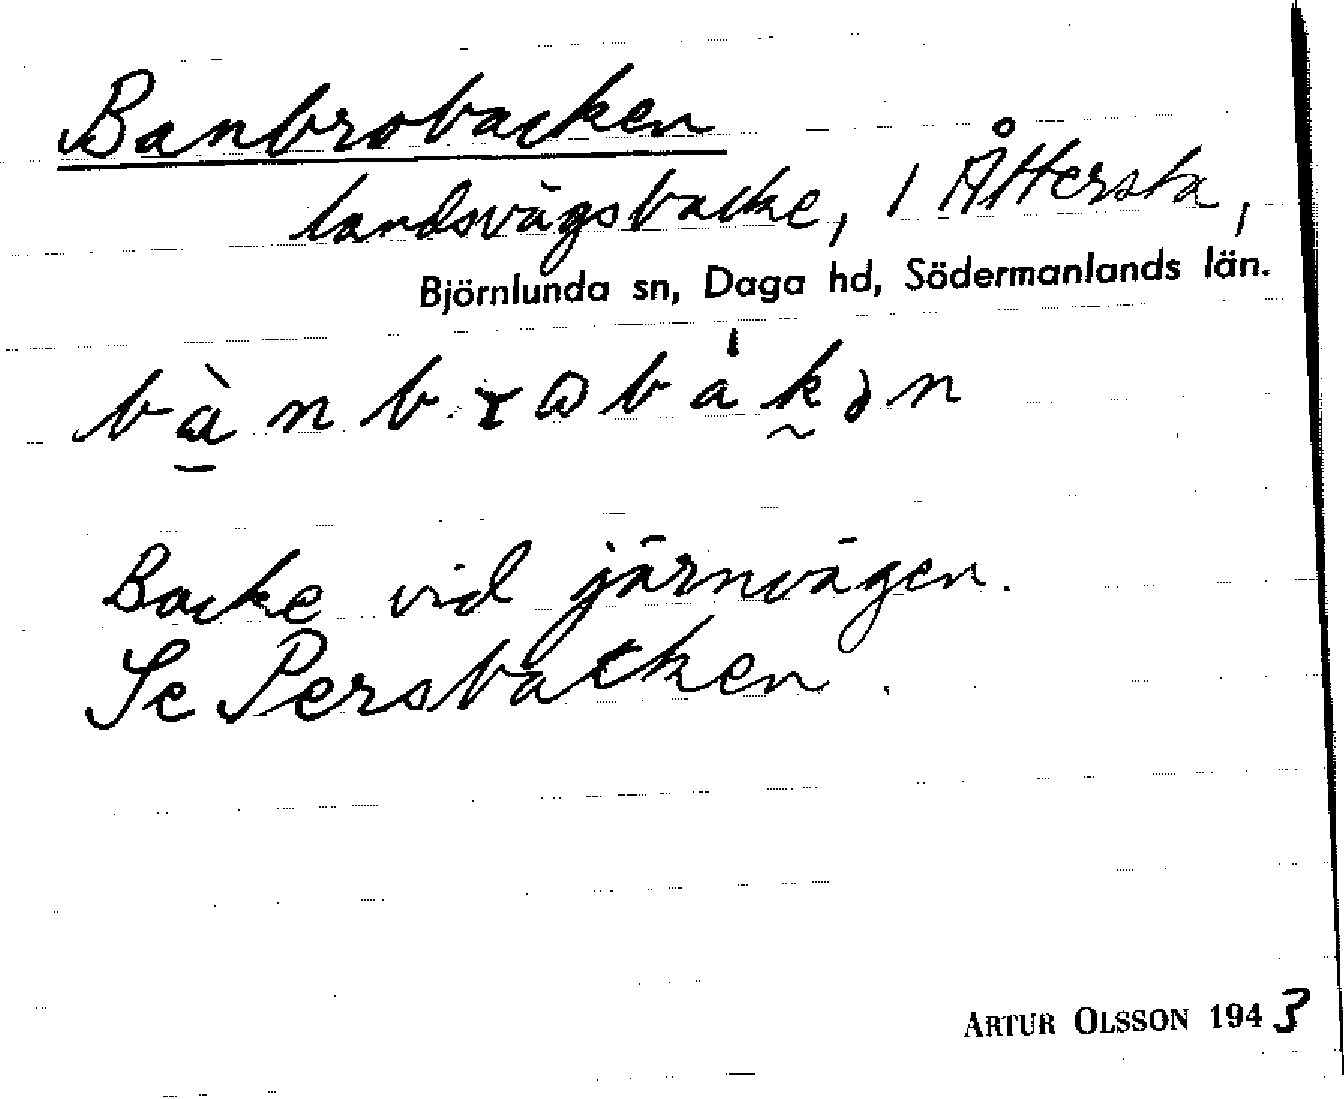 Banbrobacken
landsvägsbacke, i Åttersta,
Björnlunda sn, Daga hd, Södermanlands län.
Backe vid järnvägen.
Se Persbacken.
ARTUR OLSSON 1943